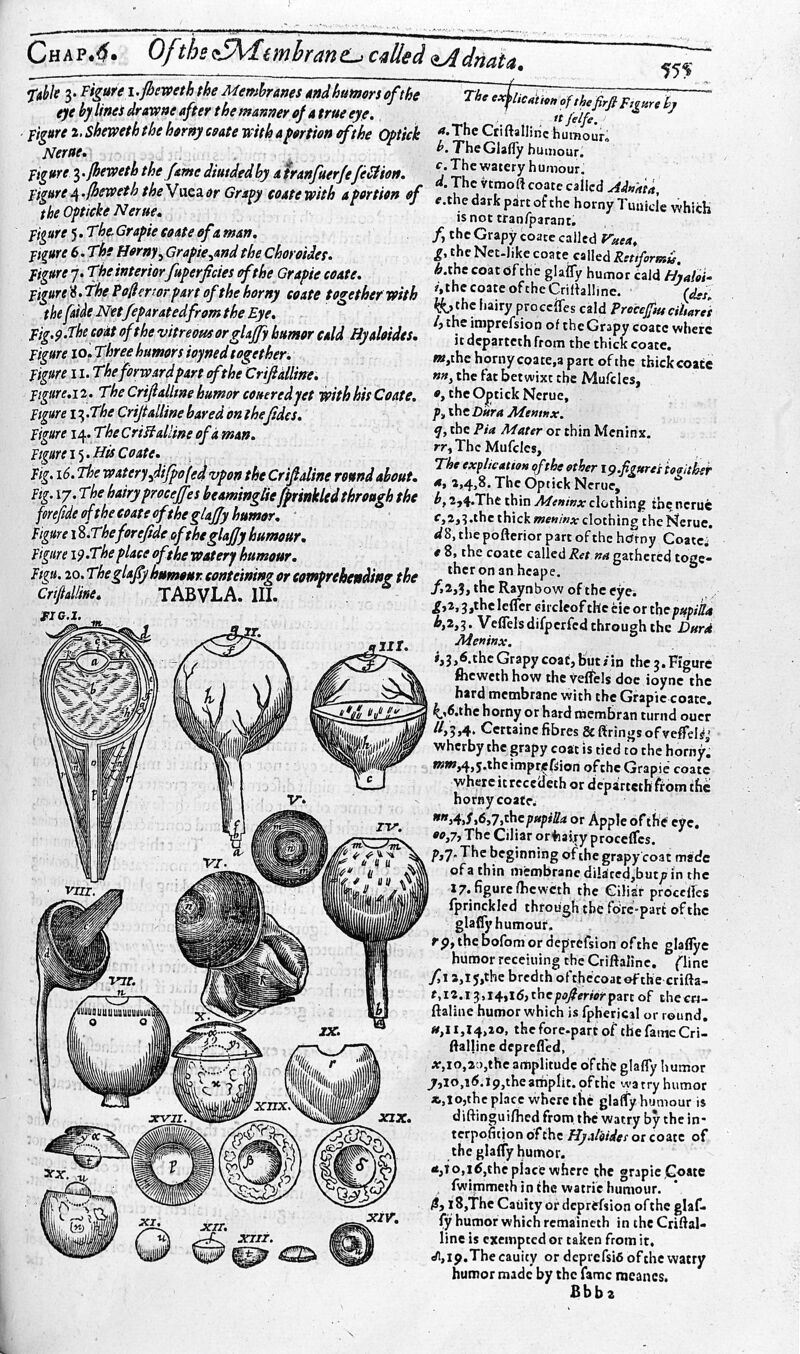 CHAP.6. Of the Membrane called Adnata. 555
Table 3. Figure 1. ſheweth the Membranes and humors of the
eye by lines drawne after the manner of a true eye.
Figure 2. Sheweth the horny coate with a portion of the Optick
Nerue.
Figure 3. ſheweth the ſame diuided by a tranſuerſe ſection.
Figure 4. ſheweth the Vuea or Grapy coate with a portion of
the Opticke Nerue.
Figure 5. The Grapie coate of a man.
Figure 6. The Horny, Grapie, and the Choroides.
Figure 7. The interior ſuperficies of the Grapie coate.
Figure 8. The Poſterior part of the horny coate together with
the ſaide Net ſeparated from the Eye.
Fig. 9. The coat of the vitreous or glaſſy humor cald Hyaloides.
Figure 10. Three humors ioyned together.
Figure 11. The forward part of the Criſtalline.
Figure. 12. The Criſtalline humor couered yet with his Coate.
Figure 13. The Criſtalline bared on the ſides.
Figure 14. The Criſtalline of a man.
Figure 15. His Coate.
Fig. 16. The watery, diſpoſed vpon the Criſtaline round about.
Fig. 17. The hairy proceſſes beaming lie ſprinkled through the
foreſide of the coate of the glaſſy humor.
Figure 18. The foreſide of the glaſſy humour.
Figure 19. The place of the watery humour.
Figu. 20. The glaſſy humour conteining or comprehending the
Criſtalline.
TABVLA. III.
The explication of the firſt Figure by
it ſelfe.
a. The Criſtalline humour.
b. The Glaſſy humour.
c. The watery humour.
d. The vtmoſt coate called Adnata,
e. the dark part of the horny Tunicle which
is not tranſparant.
f, the Grapy coate called Vuea,
g, the Net-like coate called Retiformis.
h. the coat of the glaſſy humor cald Hyaloi-
i, the coate of the Criſtalline. (des.
kk, the hairy proceſſes cald Proceſſus ciliares
l, the impreſsion of the Grapy coate where
it departeth from the thick coate.
m, the horny coate, a part of the thick coate
nn, the fat betwixt the Muſcles,
o, the Optick Nerue,
p, the Dura Meninx.
q, the Pia Mater or thin Meninx.
rr, The Muſcles,
The explication of the other 19. figures togither
a, 2,4,8. The Optick Nerue,
b, 2,4. The thin Meninx clothing the nerue
c, 2,3. the thick meninx clothing the Nerue.
d 8, the poſterior part of the horny Coate.
e 8, the coate called Ret na gathered toge-
ther on an heape.
f, 2,3, the Raynbow of the eye.
g, 2,3, the leſſer circle of the eie or the pupilla
h, 2,3. Veſſels diſperſed through the Dura
Meninx.
i, 3,6. the Grapy coat, but i in the 3. Figure
ſheweth how the veſſels doe ioyne the
hard membrane with the Grapie coate.
k, 6. the horny or hard membran turnd ouer
ll, 3,4. Certaine fibres & ſtrings of veſſels,
wherby the grapy coat is tied to the horny.
mm, 4,5. the impreſsion of the Grapie coate
where it recedeth or departeth from the
horny coate.
nn, 4,5,6,7, the pupilla or Apple of the eye.
oo, 7, The Ciliar or hairy proceſſes.
p, 7. The beginning of the grapy coat made
of a thin membrane dilated, but p in the
17. figure ſheweth the Ciliar proceſſes
ſprinckled through the fore-part of the
glaſſy humour.
r 9, the boſom or depreſsion of the glaſſye
humor receiuing the Criſtaline. (line
ſ, 12,15, the bredth of the coat of the criſta-
t, 12.13,14,16, the poſterior part of the cri-
ſtaline humor which is ſpherical or round.
u, 11,14,20, the fore-part of the ſame Cri-
ſtalline depreſſed,
x, 10,20, the amplitude of the glaſſy humor
y, 10,16.19, the amplit. of the watry humor
z, 10, the place where the glaſſy humour is
diſtinguiſhed from the watry by the in-
terpoſition of the Hyaloides or coate of
the glaſſy humor.
α, 10,16, the place where the grapie Coate
ſwimmeth in the watrie humour.
β, 18, The Cauity or depreſsion of the glaſ-
ſy humor which remaineth in the Criſtal-
line is exempted or taken from it.
δ, 19. The cauity or depreſsiõ of the watry
humor made by the ſame meanes.
Bbb2
FIG.I.
II.
III.
V.
IV.
VI.
VIII.
VII.
X.
IX.
XIIX.
XVII.
XIX.
XX.
XI.
XII.
XIII.
XIV.